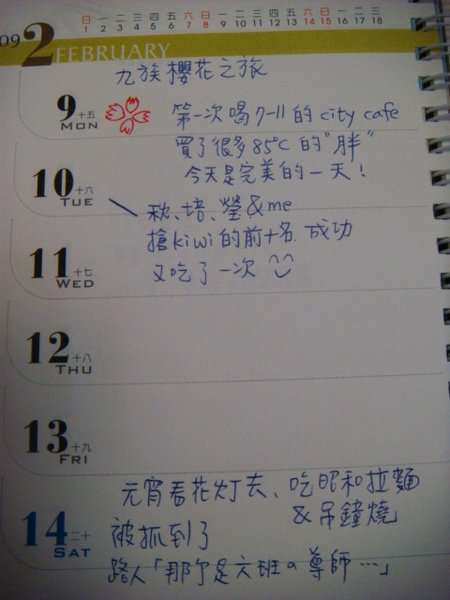 日 一 二 三 四 五 六 日 一 二 三 四 五 六 日 一 二 三
1 2 3 4 5 6 7 8 9 10 11 12 13 14 15 16 17 18
09 2 FEBRUARY
九族櫻花之旅
9 十五 MON
第一次喝7-11的city cafe
買了很多85°C的"胖"
今天是完美的一天!
10 十六 TUE
秋、培、瑩&me
搶kiwi的前十名 成功
又吃了一次
11 十七 WED
12 十八 THU
13 十九 FRI
元宵看花灯去、吃昭和拉麵
&吊鐘燒
14 二十 SAT
被抓到了
路人「那尔是六班a尊師…」